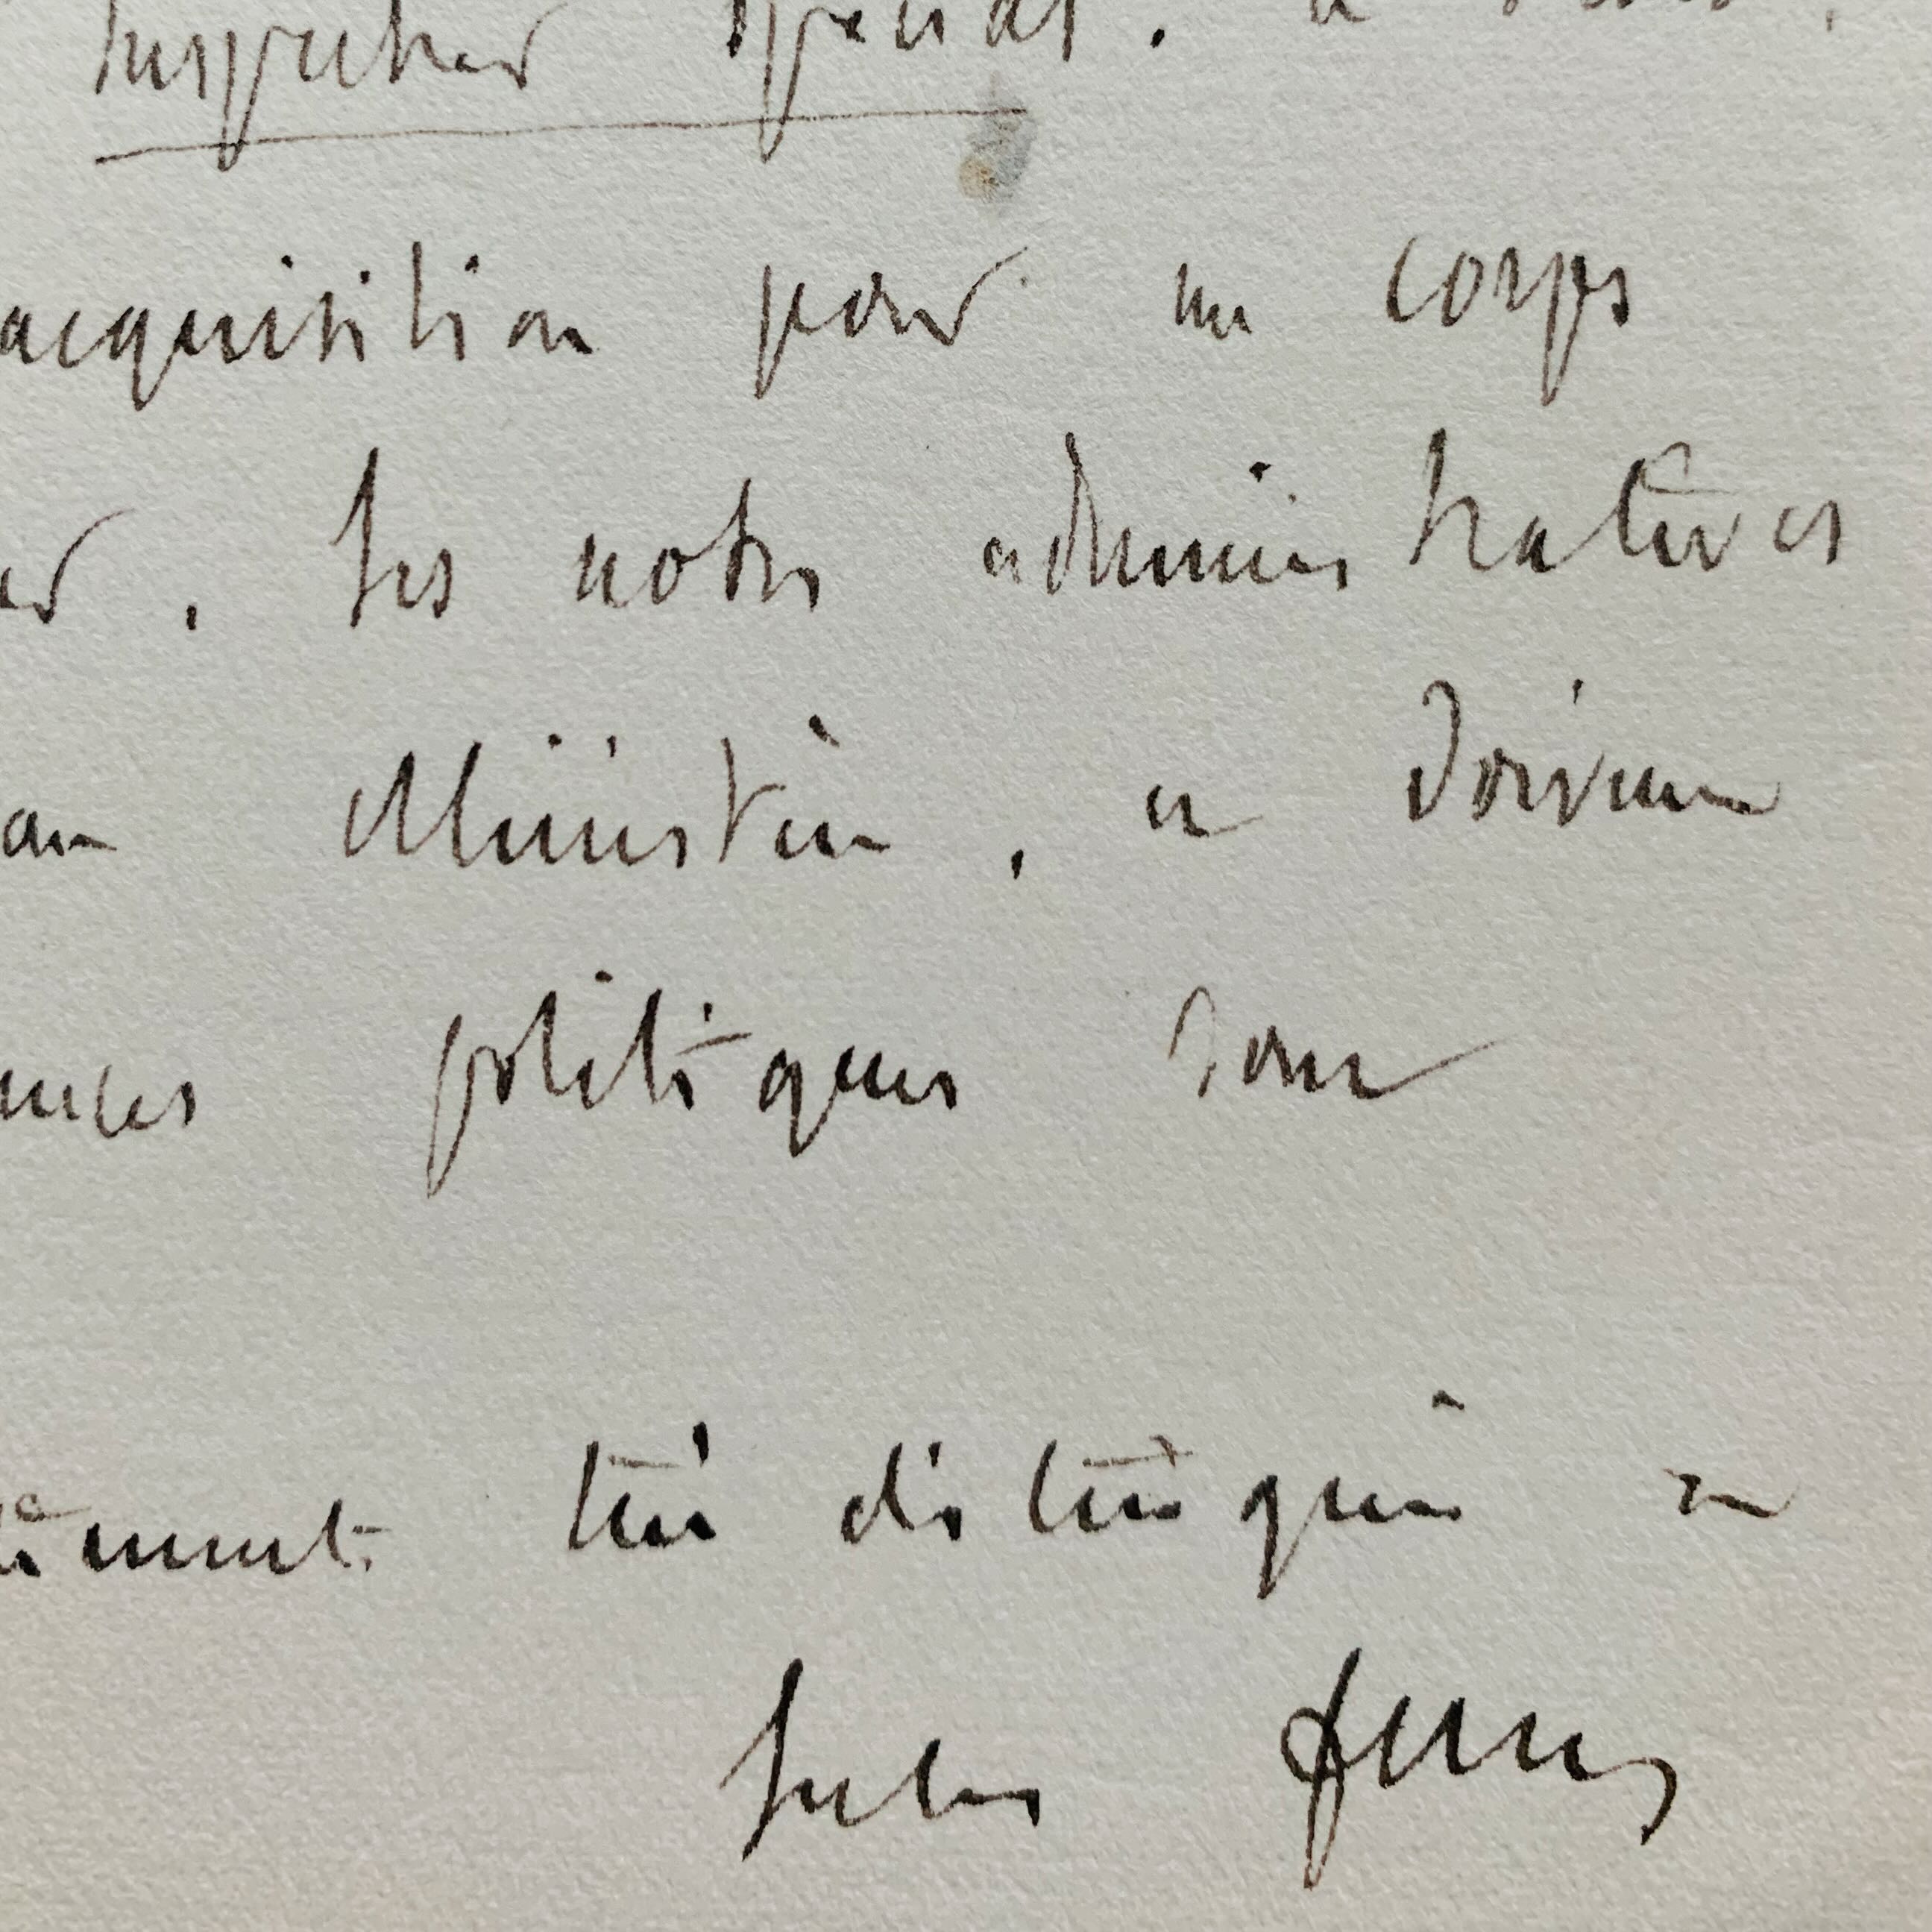 Inspecteur spécial. a
acquisition pour un corps
. Ses notes administratives
au Ministère, et doivent
politiques dont
très distingués
Jules Ferry